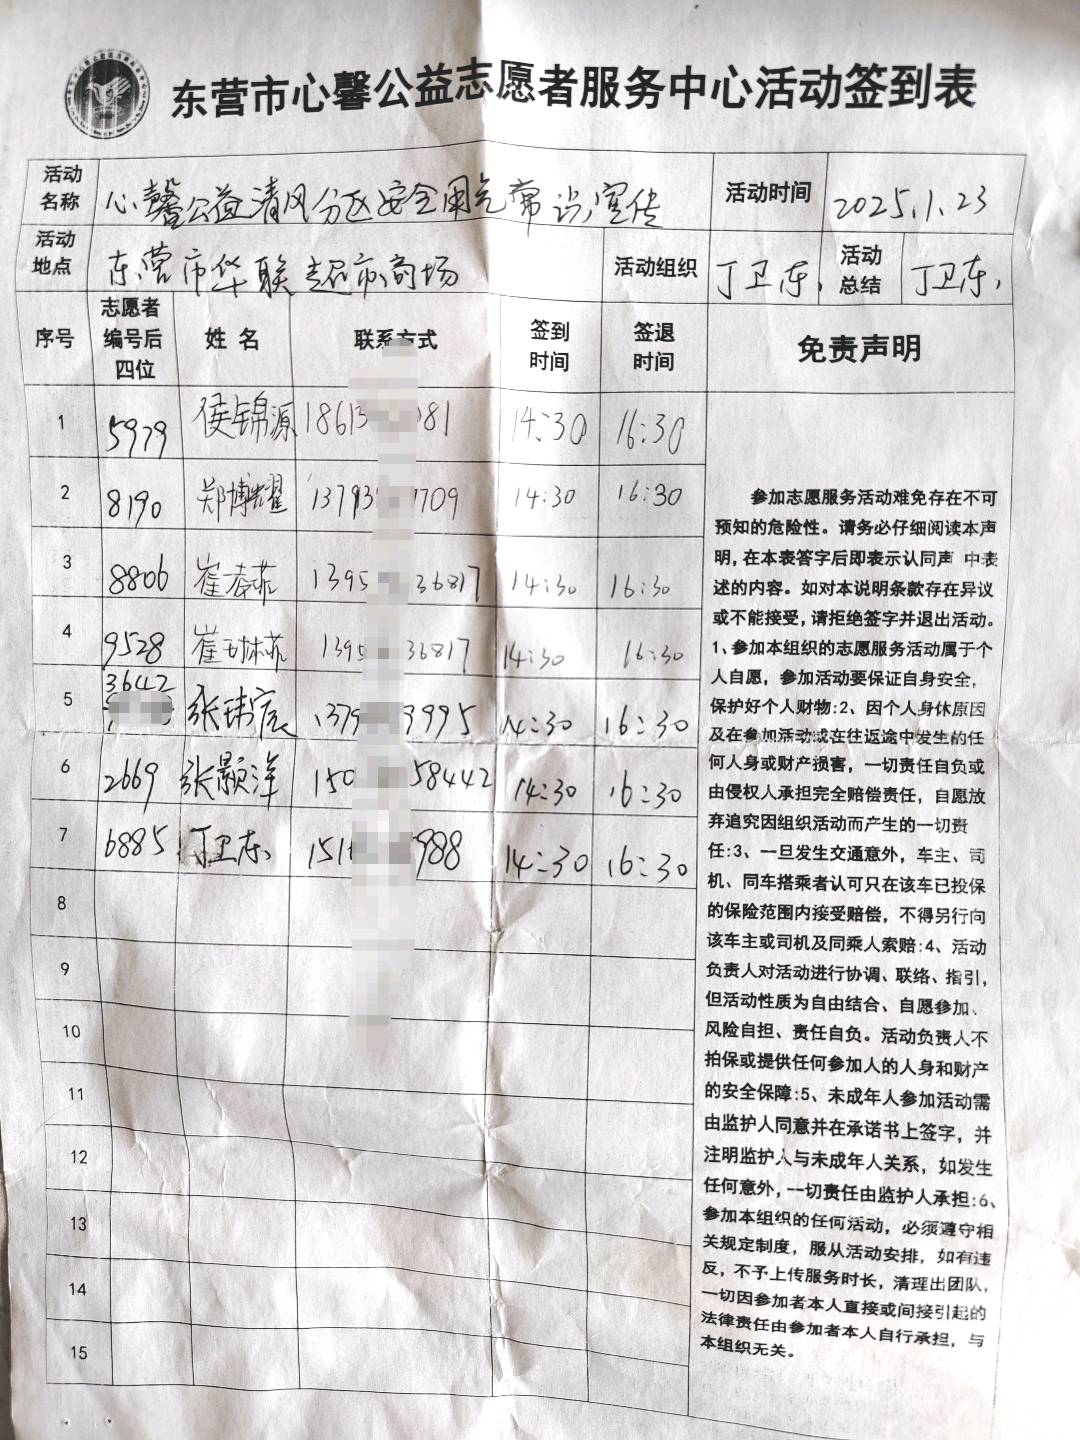 东营市心馨公益志愿者服务中心活动签到表
活动名称 心馨公益清风分区安全用气常识宣传 活动时间 2025.1.23
活动地点 东营市华联超市商场 活动组织 丁卫东 活动总结 丁卫东
序号 志愿者编号后四位 姓名 联系方式 签到时间 签退时间 免责声明
1 5979 侯锦源 1861 81 14:30 16:30
2 8190 郑博耀 1379 709 14:30 16:30
3 8806 崔 菲 1395 36817 14:30 16:30
4 9528 崔 菲 1395 36817 14:30 16:30
5 3642 张玮宸 1379 9995 14:30 16:30
6 2669 张颢洋 150 58442 14:30 16:30
7 6885 丁卫东 151 988 14:30 16:30
8
9
10
11
12
13
14
15
参加志愿服务活动难免存在不可
预知的危险性。请务必仔细阅读本声
明,在本表答字后即表示认同声 中表
述的内容。如对本说明条款存在异议
或不能接受,请拒绝签字并退出活动。
1、参加本组织的志愿服务活动属于个
人自愿,参加活动要保证自身安全,
保护好个人财物:2、因个人身休原因
及在参加活动或在往返途中发生的任
何人身或财产损害,一切责任自负或
由侵权人承担完全赔偿责任,自愿放
弃追究因组织活动而产生的一切责
任:3、一旦发生交通意外,车主、司
机、同车搭乘者认可只在该车已投保
的保险范围内接受赔偿,不得另行向
该车主或司机及同乘人索赔:4、活动
负责人对活动进行协调、联络、指引,
但活动性质为自由结合、自愿参加、
风险自担、责任自负。活动负责人不
拍保或提供任何参加人的人身和财产
的安全保障:5、未成年人参加活动需
由监护人同意并在承诺书上签字,并
注明监护人与未成年人关系,如发生
任何意外,一切责任由监护人承担:6、
参加本组织的任何活动,必须遵守相
关规定制度,服从活动安排,如有违
反,不予上传服务时长,清理出团队,
一切因参加者本人直接或间接引起的
法律责任由参加者本人自行承担,与
本组织无关。